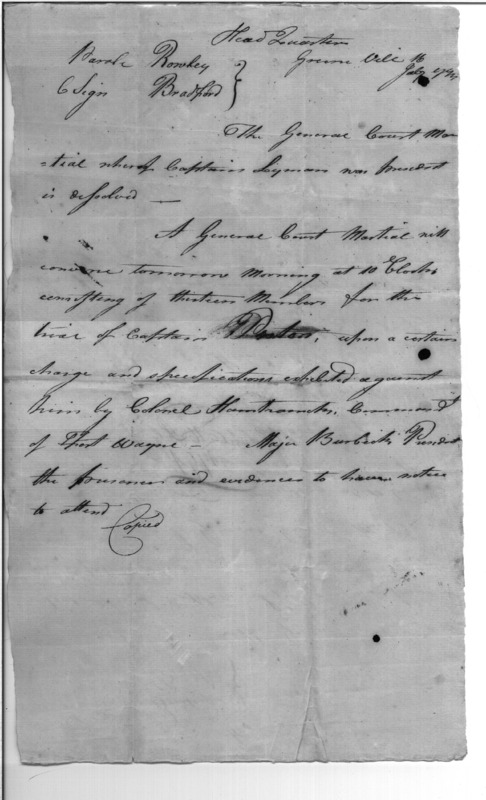 Head Quarters
Parole Rowley } Greene Ville 16
C Sign Bradford July 179
The General Court Mar
-tial whereof Captain Lyman was president
is dissolved —
A General Court Martial will
convene tomorrow Morning at 10 Clock,
consisting of thirteen Members for the
trial of Captain Preston, upon a certain
charge and specifications exhibited against
him by Colonel Hamtramck, Command.t
of Fort Wayne — Major Burbeck President
the prisoner and evidences to have notice
to attend
Copied